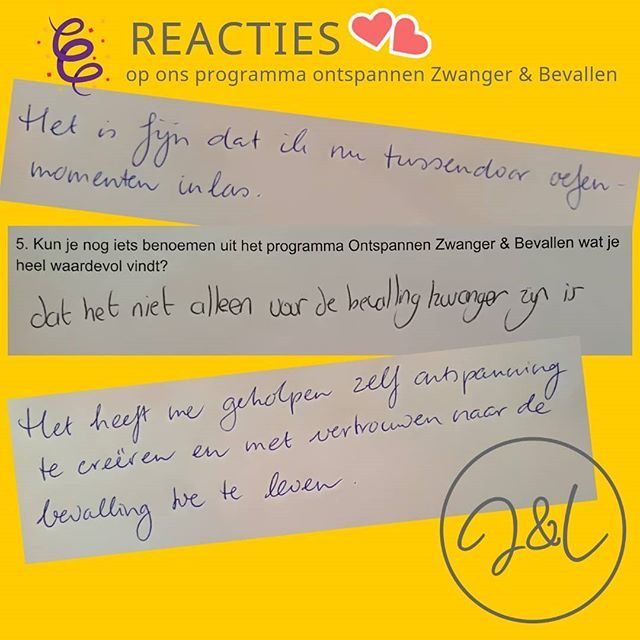 REACTIES
op ons programma ontspannen Zwanger & Bevallen
Het is fijn dat ik nu tussendoor oefen-
momenten inlas.
5. Kun je nog iets benoemen uit het programma Ontspannen Zwanger & Bevallen wat je
heel waardevol vindt?
dat het niet alleen voor de bevalling/zwanger zijn is
Het heeft me geholpen zelf ontspanning
te creëren en met vertrouwen naar de
bevalling toe te leven.
J&L